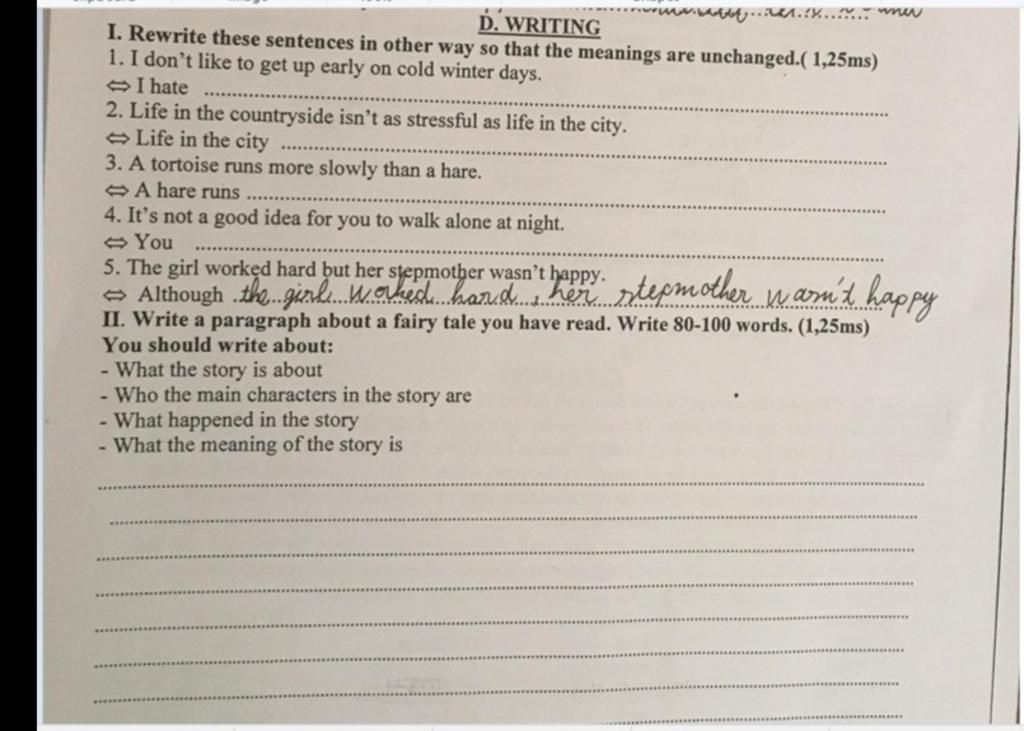 D. WRITING
I. Rewrite these sentences in other way so that the meanings are unchanged.( 1,25ms)
1. I don't like to get up early on cold winter days.
⇔ I hate ........................................
2. Life in the countryside isn't as stressful as life in the city.
⇔ Life in the city ........................................
3. A tortoise runs more slowly than a hare.
⇔ A hare runs ........................................
4. It's not a good idea for you to walk alone at night.
⇔ You ........................................
5. The girl worked hard but her stepmother wasn't happy.
⇔ Although the girl worked hard, her stepmother wasn't happy
II. Write a paragraph about a fairy tale you have read. Write 80-100 words. (1,25ms)
You should write about:
- What the story is about
- Who the main characters in the story are
- What happened in the story
- What the meaning of the story is